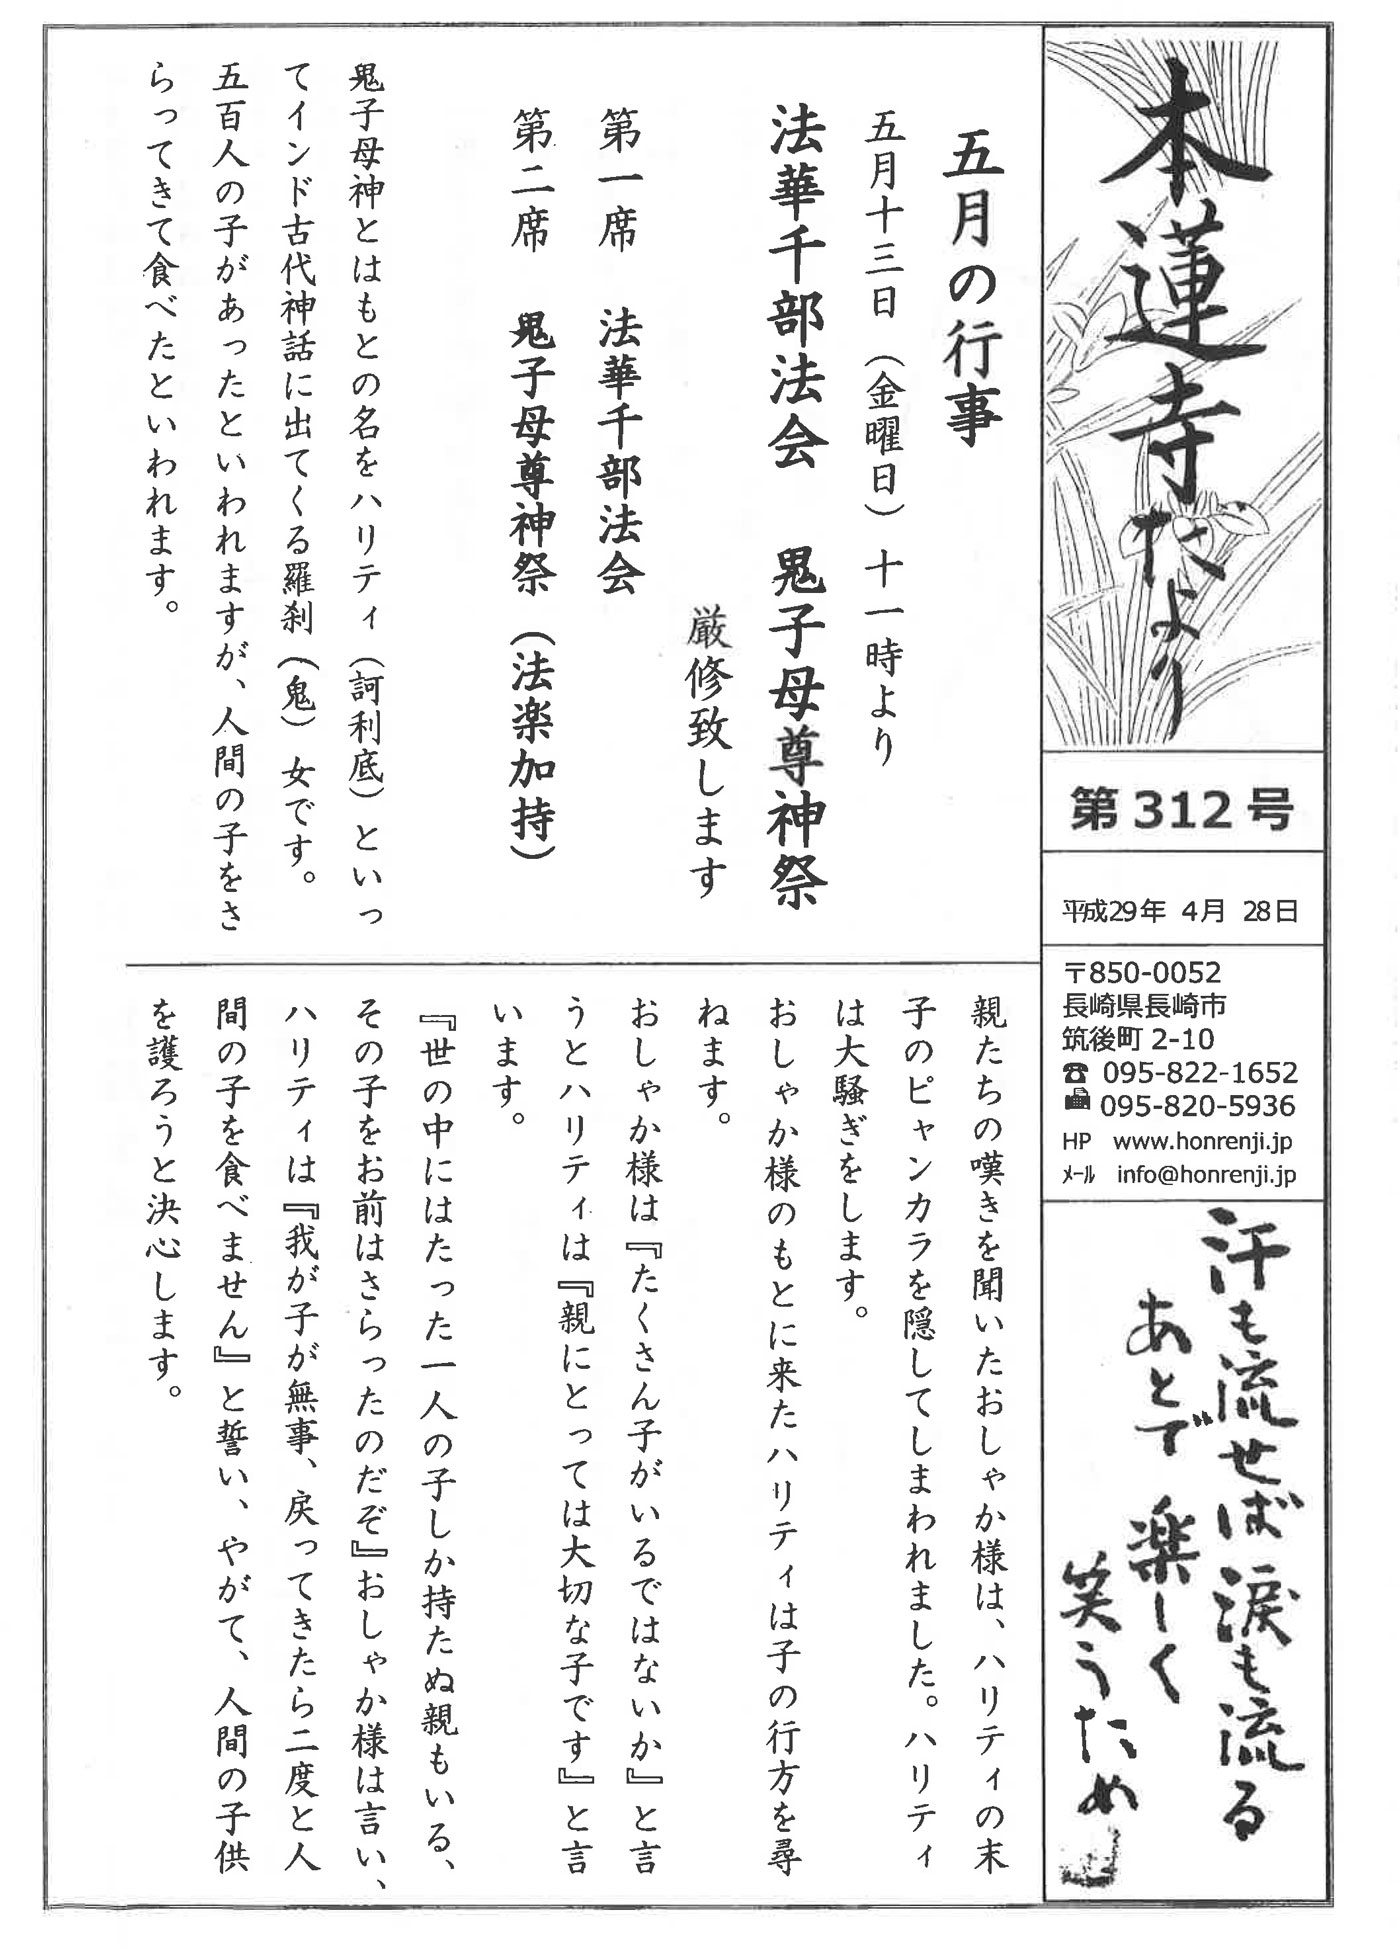 本蓮寺だより
第312号
平成29年 4月 28日
〒850-0052
長崎県長崎市
筑後町 2-10
☎ 095-822-1652
095-820-5936
HP www.honrenji.jp
ﾒｰﾙ info@honrenji.jp
汗も流せば涙も流る
あとで楽しく
笑うため
五月の行事
五月十三日（金曜日）十一時より
法華千部法会 鬼子母尊神祭
厳修致します
第一席 法華千部法会
第二席 鬼子母尊神祭（法楽加持）
鬼子母神とはもとの名をハリティ（訶利底）といっ
てインド古代神話に出てくる羅刹（鬼）女です。
五百人の子があったといわれますが、人間の子をさ
らってきて食べたといわれます。
親たちの嘆きを聞いたおしゃか様は、ハリティの末
子のピャンカラを隠してしまわれました。ハリティ
は大騒ぎをします。
おしゃか様のもとに来たハリティは子の行方を尋
ねます。
おしゃか様は『たくさん子がいるではないか』と言
うとハリティは『親にとっては大切な子です』と言
います。
『世の中にはたった一人の子しか持たぬ親もいる、
その子をお前はさらったのだぞ』おしゃか様は言い、
ハリティは『我が子が無事、戻ってきたら二度と人
間の子を食べません』と誓い、やがて、人間の子供
を護ろうと決心します。